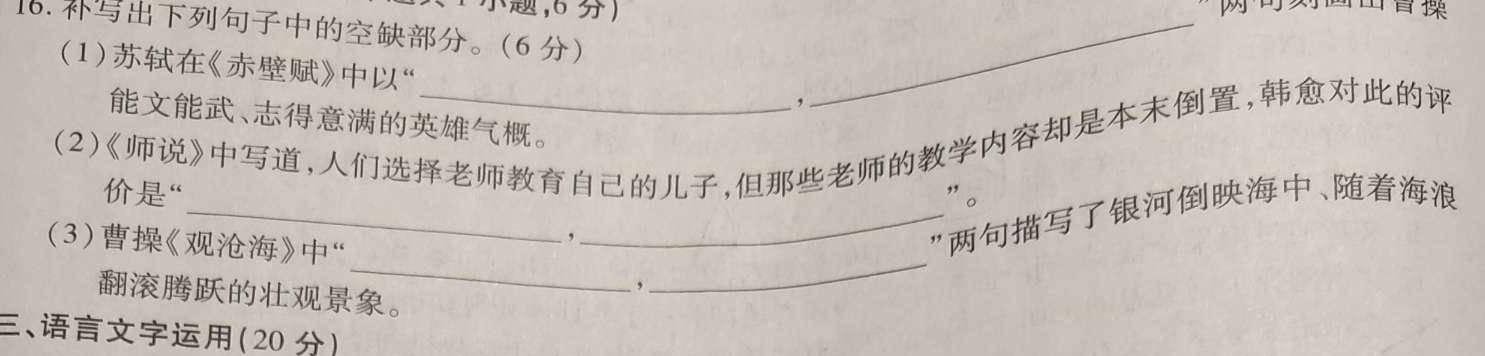 小题,6分)
16.补写出下列句子中的空缺部分。(6分)
(1)苏轼在《赤壁赋》中以“________,________”两句刻画出曹操
能文能武、志得意满的英雄气概。
(2)《师说》中写道,人们选择老师教育自己的儿子,但那些老师的教学内容却是本末倒置,韩愈对此的评
价是“________,________”。
(3)曹操《观沧海》中“________,________”两句描写了银河倒映海中、随着海浪
翻滚腾跃的壮观景象。
三、语言文字运用(20分)